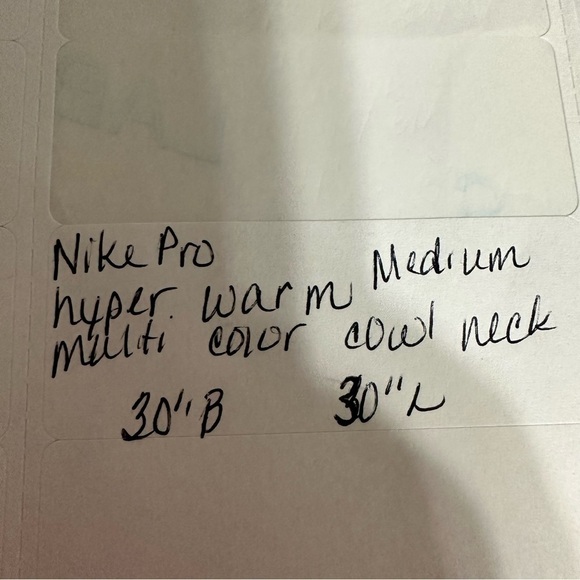 Nike Pro Medium
hyper. warm
multi color cowl neck
30"B 30"L